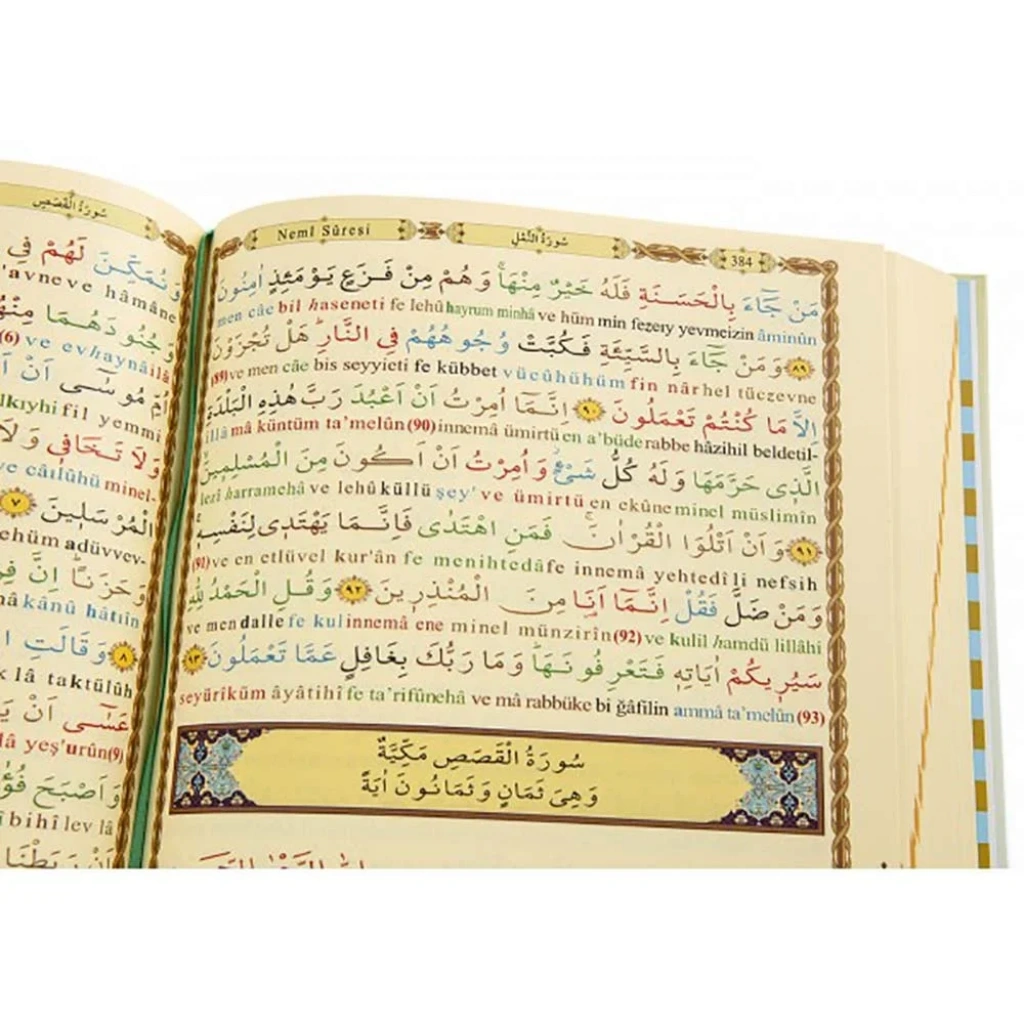 Neml Sûresi سُورَةُ النَّمْلِ 384
مَنْ جَٓاءَ بِالْحَسَنَةِ فَلَهُ خَيْرٌ مِنْهَاۚ وَهُمْ مِنْ فَزَعٍ يَوْمَئِذٍ اٰمِنُونَ
men câe bil haseneti fe lehû hayrum minhâ ve hüm min fezeıy yevmeizin âminûn
﴿٨٩﴾ وَمَنْ جَٓاءَ بِالسَّيِّئَةِ فَكُبَّتْ وُجُوهُهُمْ فِي النَّارِۜ هَلْ تُجْزَوْنَ
(89)ve men câe bis seyyieti fe kübbet vücûhühüm fin nârhel tüczevne
اِلَّا مَا كُنْتُمْ تَعْمَلُونَ ﴿٩٠﴾ اِنَّمَٓا اُمِرْتُ اَنْ اَعْبُدَ رَبَّ هٰذِهِ الْبَلْدَةِ
illâ mâ küntüm ta'melûn(90)innemâ ümirtü en a'büde rabbe hâzihil beldetil-
الَّذ۪ي حَرَّمَهَا وَلَهُ كُلُّ شَيْءٍۘ وَاُمِرْتُ اَنْ اَكُونَ مِنَ الْمُسْلِم۪ينَۙ
lezî harramehâ ve lehû küllü şey' ve ümirtü en ekûne minel müslimîn
﴿٩١﴾ وَاَنْ اَتْلُوَا الْقُرْاٰنَۚ فَمَنِ اهْتَدٰى فَاِنَّمَا يَهْتَد۪ي لِنَفْسِه۪ۚ
(91)ve en etlüvel kur'ân fe menihtedâ fe innemâ yehtedî li nefsih
وَمَنْ ضَلَّ فَقُلْ اِنَّمَٓا اَنَا۬ مِنَ الْمُنْذِر۪ينَ ﴿٩٢﴾ وَقُلِ الْحَمْدُ لِلّٰهِ
ve men dalle fe kul innemâ ene minel münzirîn(92)ve kulil hamdü lillâhi
سَيُر۪يكُمْ اٰيَاتِه۪ فَتَعْرِفُونَهَاۜ وَمَا رَبُّكَ بِغَافِلٍ عَمَّا تَعْمَلُونَ ﴿٩٣﴾
seyürîküm âyâtihî fe ta'rifûnehâ ve mâ rabbüke bi ğâfilin ammâ ta'melûn(93)
سُورَةُ الْقَصَصِ مَكِّيَّةٌ
وَهِيَ ثَمَانٍ وَثَمَانُونَ اٰيَةً
سُورَةُ الْقَصَصِ
وَنُمَكِّنَ لَهُمْ فِي
'avne ve hâmâne
وَجُنُودَهُمَا
(6) ve evhaynâ ilâ
اُمِّ مُوسٰٓى اَنْ
lkıyhi fil yemmi
وَلَا تَخَاف۪ي وَلَا
ve câılûhü minel-
الْمُرْسَل۪ينَ ﴿٧﴾
ehüm adüvvev-
وَحَزَنًاۜ اِنَّ
kânû hâtıîn
﴿٨﴾ وَقَالَتِ
lâ taktülûh
عَسٰٓى اَنْ
yeş'urûn(9)
وَاَصْبَحَ
bihî lev lâ
اَنْ رَبَطْنَا